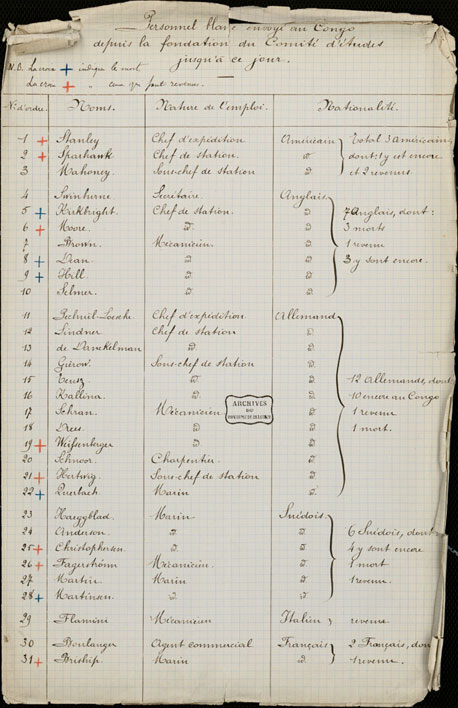 Personnel blanc envoyé au Congo
depuis la fondation du Comité d'études
jusqu'à ce jour.
N.B. La croix + indique la mort
La croix + " ceux qui sont revenus.
N° d'ordre. Noms. Nature de l'emploi. Nationalité.
1 + Stanley Chef d'expédition Américain Total 3 Américains
2 + Sparhawk Chef de station. d° dont 1 y est encore
3 Mahoney Sous-chef de station d° et 2 revenus.
4 Swinburne. Secrétaire. Anglais
5 + Kirkbright. Chef de station. d° 7 Anglais, dont :
6 + Moore. d° d° 3 morts
7 Brown. Mécanicien. d° 1 revenu
8 + Dean d° d° 3 y sont encore.
9 + Hill. d° d°
10 Selmer. d° d°
11 Pechuël-Loesche. Chef d'expédition Allemand
12 Lindner Chef de station d°
13 de Danckelman d° d°
14 Sous-chef de station d°
15 d° d° 12 Allemands, dont
16 Kallina. d° d° 10 encore au Congo
17 Schran. Mécanicien d° 1 revenu
18 d° d° 1 mort.
19 + d° d°
20 Schnoor. Charpentier. d°
21 + Hertwig. Sous-chef de station d°
22 + Marin d°
ARCHIVES
DU
23 Haeggblad. Marin Suédois
24 Anderson. d° d° 6 Suédois, dont
25 + Christophersen d° d° 4 y sont encore
26 + Fagerström Mécanicien. d° 1 mort
27 Martin Marin d° 1 revenu.
28 + Martinsen d° d°
29 Flamini Mécanicien Italien revenu
30 Boulanger Agent commercial Français 2 Français, dont
31 + Marin d° 1 revenu.